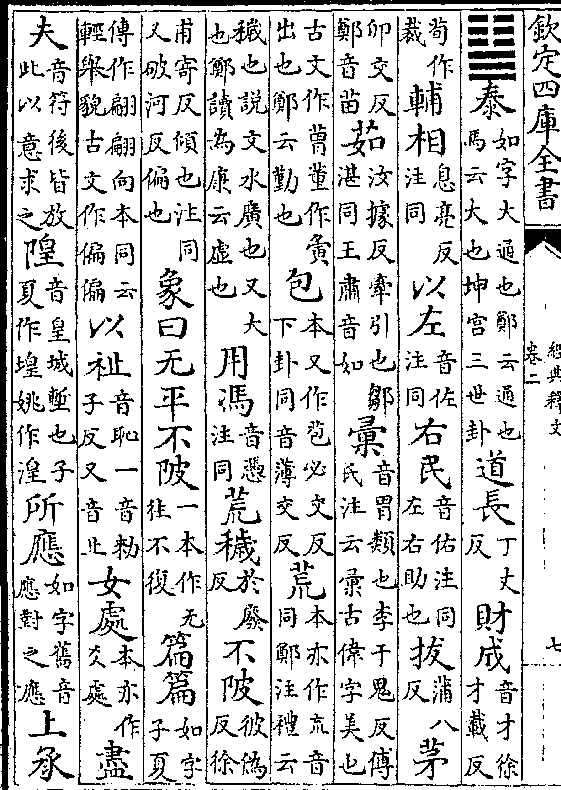 欽定四庫全書
經典釋文
卷二
七
䷊泰如字大通也鄭云通也馬云大也坤宮三世卦道長丁丈反財成音才徐才載反
荀作裁輔相息亮反注同以左音佐注同右民音佑注同左右助也拔蒲八反茅
卯交反鄭音苗茹汝據反牽引也鄒湛同王肅音如彙音胃類也李于鬼反傅氏注云彙古偉字美也
古文作曹董作夤出也鄭云勤也包本又作苞必交反下卦同音薄交反荒本亦作巟音同鄭注禮云
穢也說文水廣也又大也鄭讀為康云虛也用馮音憑注同荒穢於廢反不陂彼偽反徐
甫寄反傾也注同又破河反偏也象曰无平不陂一本作无往不復篇篇如字子夏
傳作翩翩向本同云輕舉貌古文作偏偏以祉音恥一音勑子反又音止女處本亦作爻處盡
夫音符後皆放此以意求之隍音皇城塹也子夏作堭姚作湟所應如字舊音應對之應上承